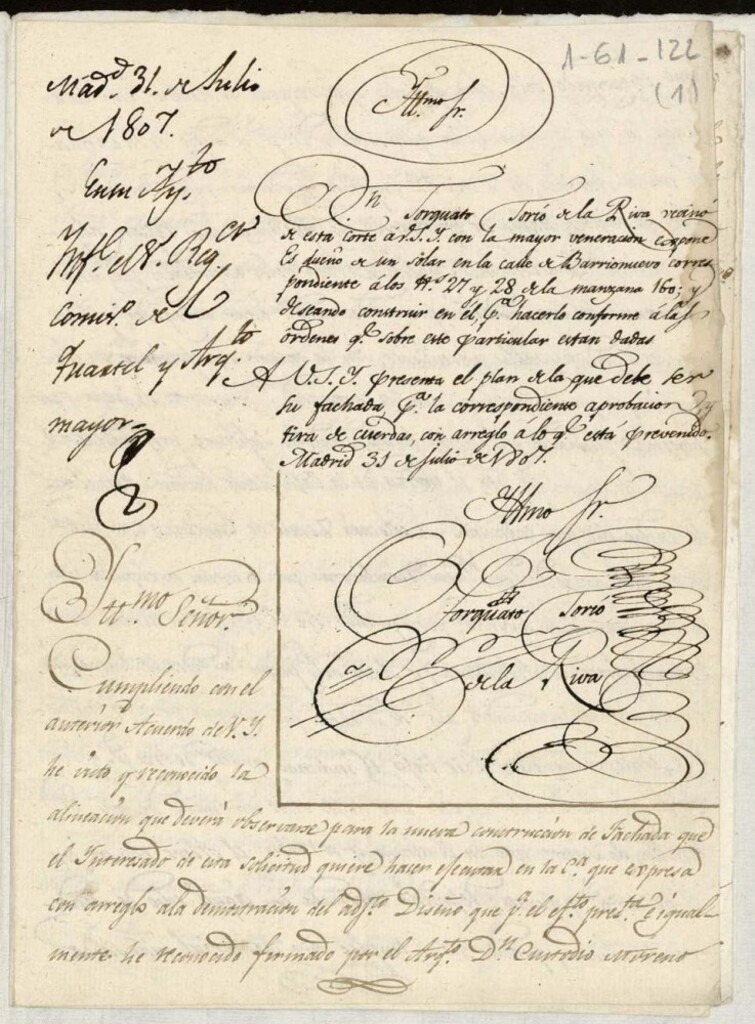 1-61-122
(1)
Yll.mo Sr.
Mad.d 31. de Julio
de 1807.
En su Ay.to
Ynf.e el Sr. Reg.or
Comis.o de
Quartel y Arq.to
mayor
D.n Torquato Torio de la Riva vecino
de esta corte á V.S.Y. con la mayor veneracion expone
Es dueño de un solar en la calle de Barrionuevo corres
pondiente á los n.s 27 y 28 de la manzana 160; y
deseando construir en el, p.a hacerlo conforme á las
ordenes q.e sobre este particular estan dadas
A V.S.Y. presenta el plan de la que debe ser
su fachada, p.a la correspondiente aprobacion y
tira de cuerdas, con arreglo á lo q.e está prevenido.
Madrid 31 de Julio de 1807.
Yllmo Sr.
Torquato Torio
de la Riva
Yll.mo Señor.
Cumpliendo con el
anterior Acuerdo de V.Y.
he visto y reconocido la
alineacion que deverá observarse para la nueva construccion de Fachada que
el Interesado de esta solicitud quiere hacer executar en la C.a que expresa
con arreglo ala demostracion del adj.to Diseño que p.a el ef.to pres.ta é igual-
mente he reconocido firmado por el Arq.to D.n Custodio Moreno